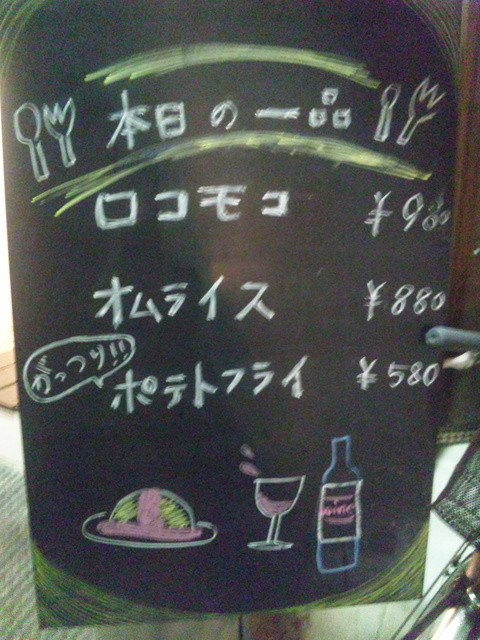 本日の一品
ロコモコ ¥980
オムライス ¥880
がっつり!!!
ポテトフライ ¥580
wine